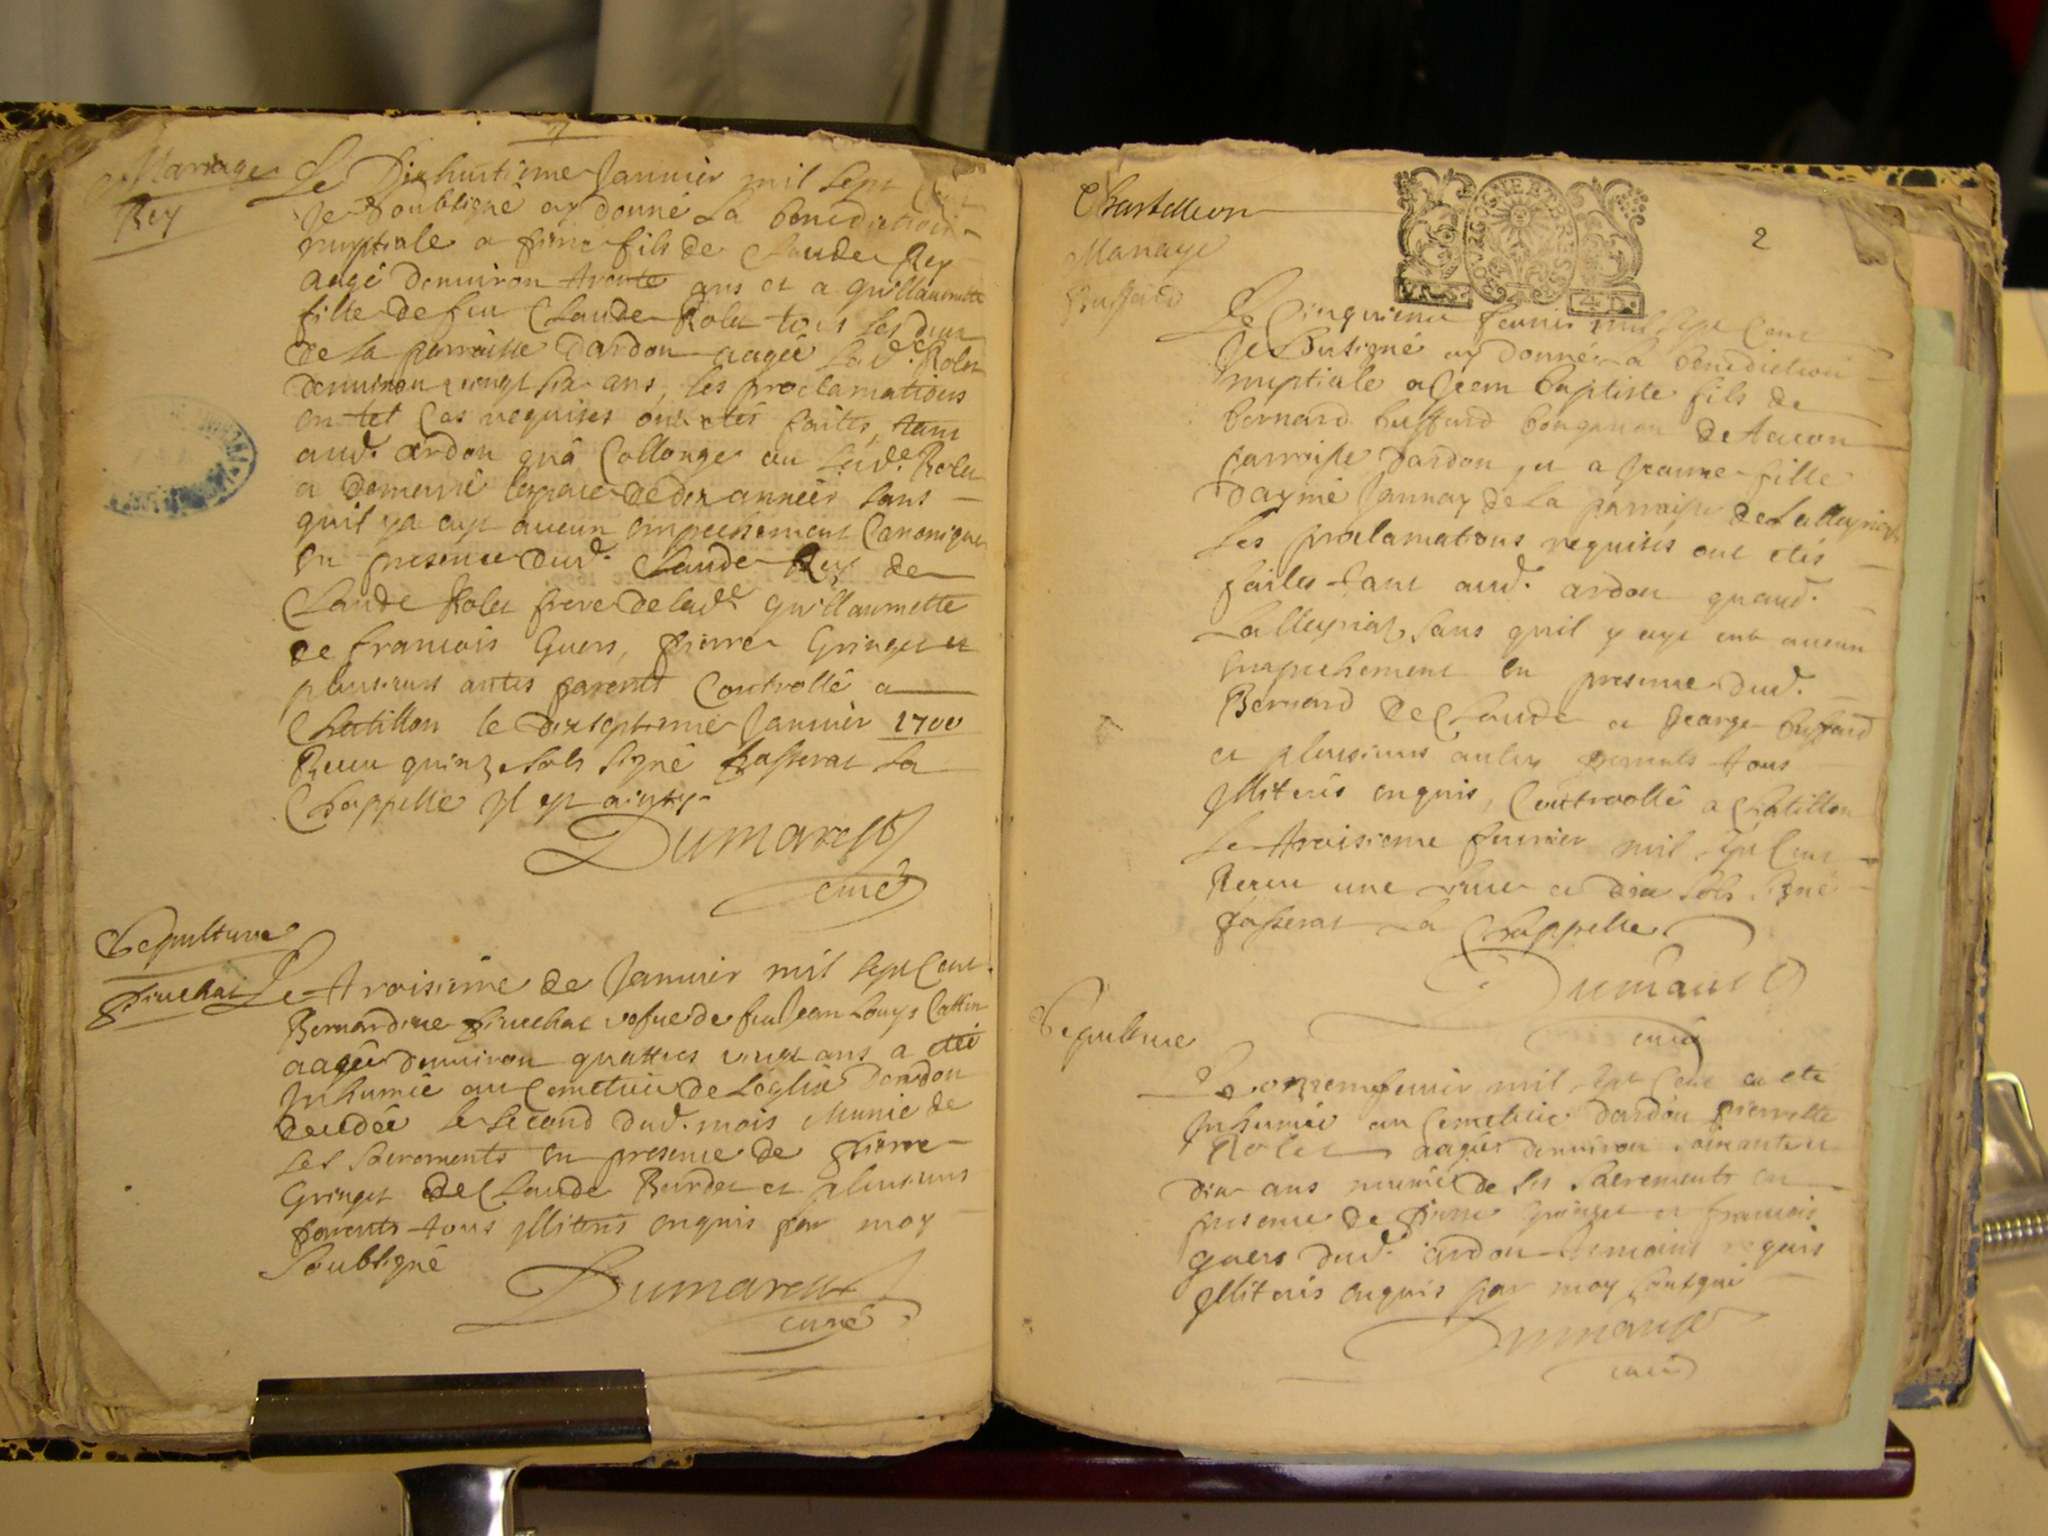 Mariage
Rey
Le Dixhuitieme Jannier mil sept Cent
Je soubsigné ay donne la benediction
nuptiale a pierre fils de Claude Rey
aagé denuiron trente ans et a guillaumette
fille de feu Claude Rolet tous les deux
de la parroisse Dardon aagée lad.e Rolet
denuiron vingt six ans, les proclamations
en tel Cas requises ont etés faites, tant
aud. ardon qua Collonge ou lad.e Rolet
a demeuré lespace de dix années sans
quil y a eyt aucun empechement Canonique
en presence dud. Claude Rey de
Claude Rolet frere de lad.e guillaumette
de francois Guers, pierre Gringet et
plusieurs autes parents Controllé a
Chatillon le dixseptieme Januier 1700
Receu quinze sols signé passerat la
Chappelle Jl est ainsy
Dumarest
curé
Sepulture
Pinchat
Le troisieme de Januier mil sept Cent
Bernardine vefue de feu Jean Louys Cattin
aagée denuiron quattres vingt ans a etée
Inhumée au Cemetiere de Leglise Dardon
decedée le second dud. mois Munie de
ses sacrements en presence de pierre
Gringet de Claude Burdet et plusieurs
parents tous Jlliterés enquis par moy
soubsigné
Dumarest
curé
Chastillion
BOURGOGNE ET BRESSE
4 D.
2
Mariage
Buffard
Le Cinquieme feurier mil sept Cent
Je soubsigné ay donné la benediction
nuptiale a Jean baptiste fils de
bernard buffard de Tacon
parroisse dardon, et a Jeanne fille
daymé Jannay de la parroisse de Lalleyriat
les proclamations requises ont etés
faites tant aud. ardon quaud.
Lalleyriat, sans quil y aye eut aucun
empechement en presence dud.
Bernard de Claude et George buffard
et plusieurs autes parents tous
Jlliterés enquis, Controollé a Chatillon
le troisieme feurier mil sept Cent
Receu une liure et dix sols signé
passerat la Chappelle
Dumarest
curé
Sepulture
Le onzieme feurier mil sept Cent a eté
Inhumée au Cemetiere dardon pierrette
Rolet aagée denuiron soixante et
dix ans munie de ses sacrements en
presence de pierre Gringet et francois
guers dud. ardon temoins requis
Jlliterés enquis par moy soubsigné
Dumarest
curé